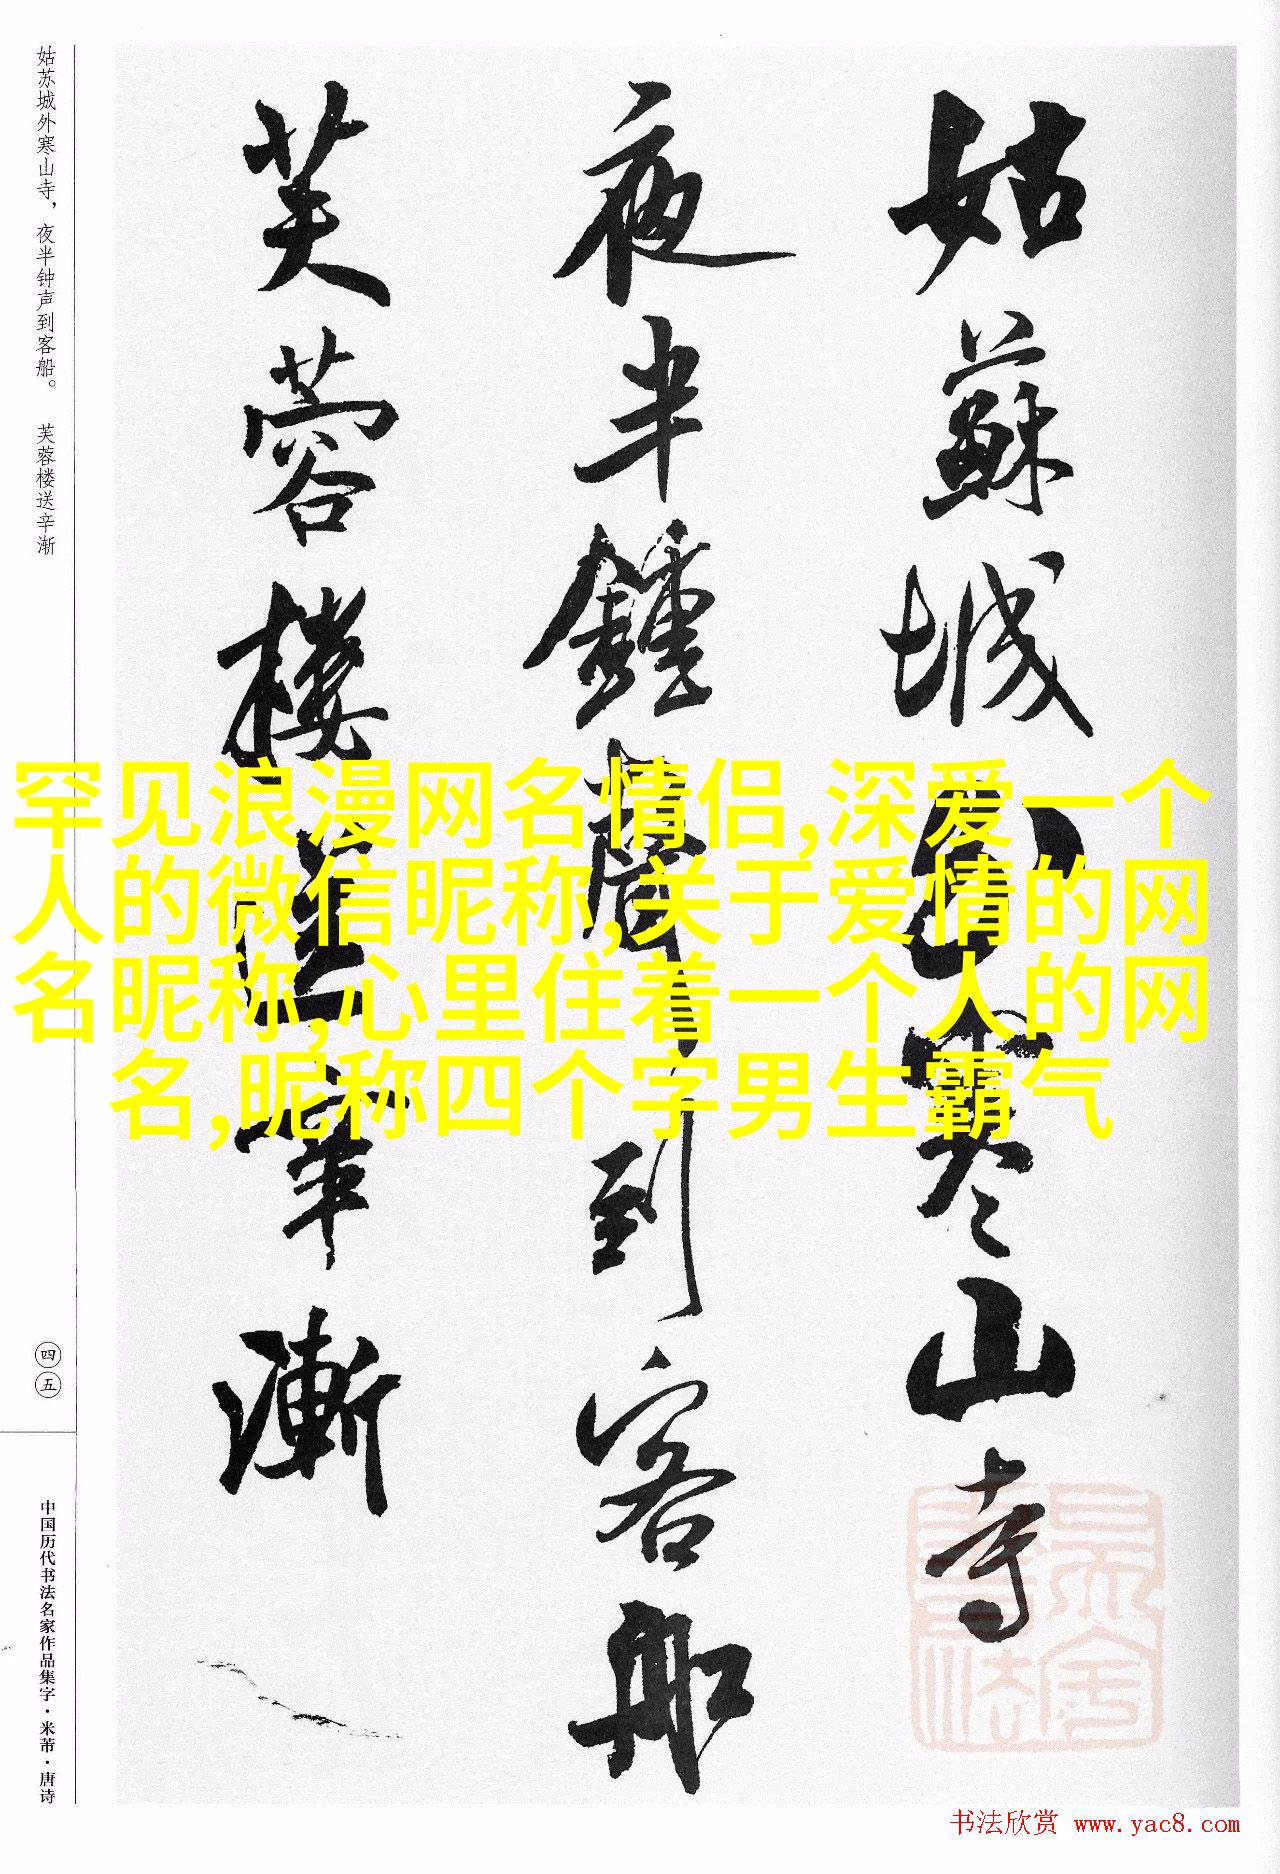 姑蘇城外寒山寺
夜半鍾聲到客船
芙蓉樓送辛漸
姑苏城外寒山寺，夜半钟声到客船。 芙蓉楼送辛渐
四五
中国历代书法名家作品集字·米芾·唐诗
罕见浪漫网名情侣,深爱一个
人的微信昵称,关于爱情的网
名昵称,心里住着一个人的网
名,昵称四个字男生霸气
书法欣赏 www.yac8.com